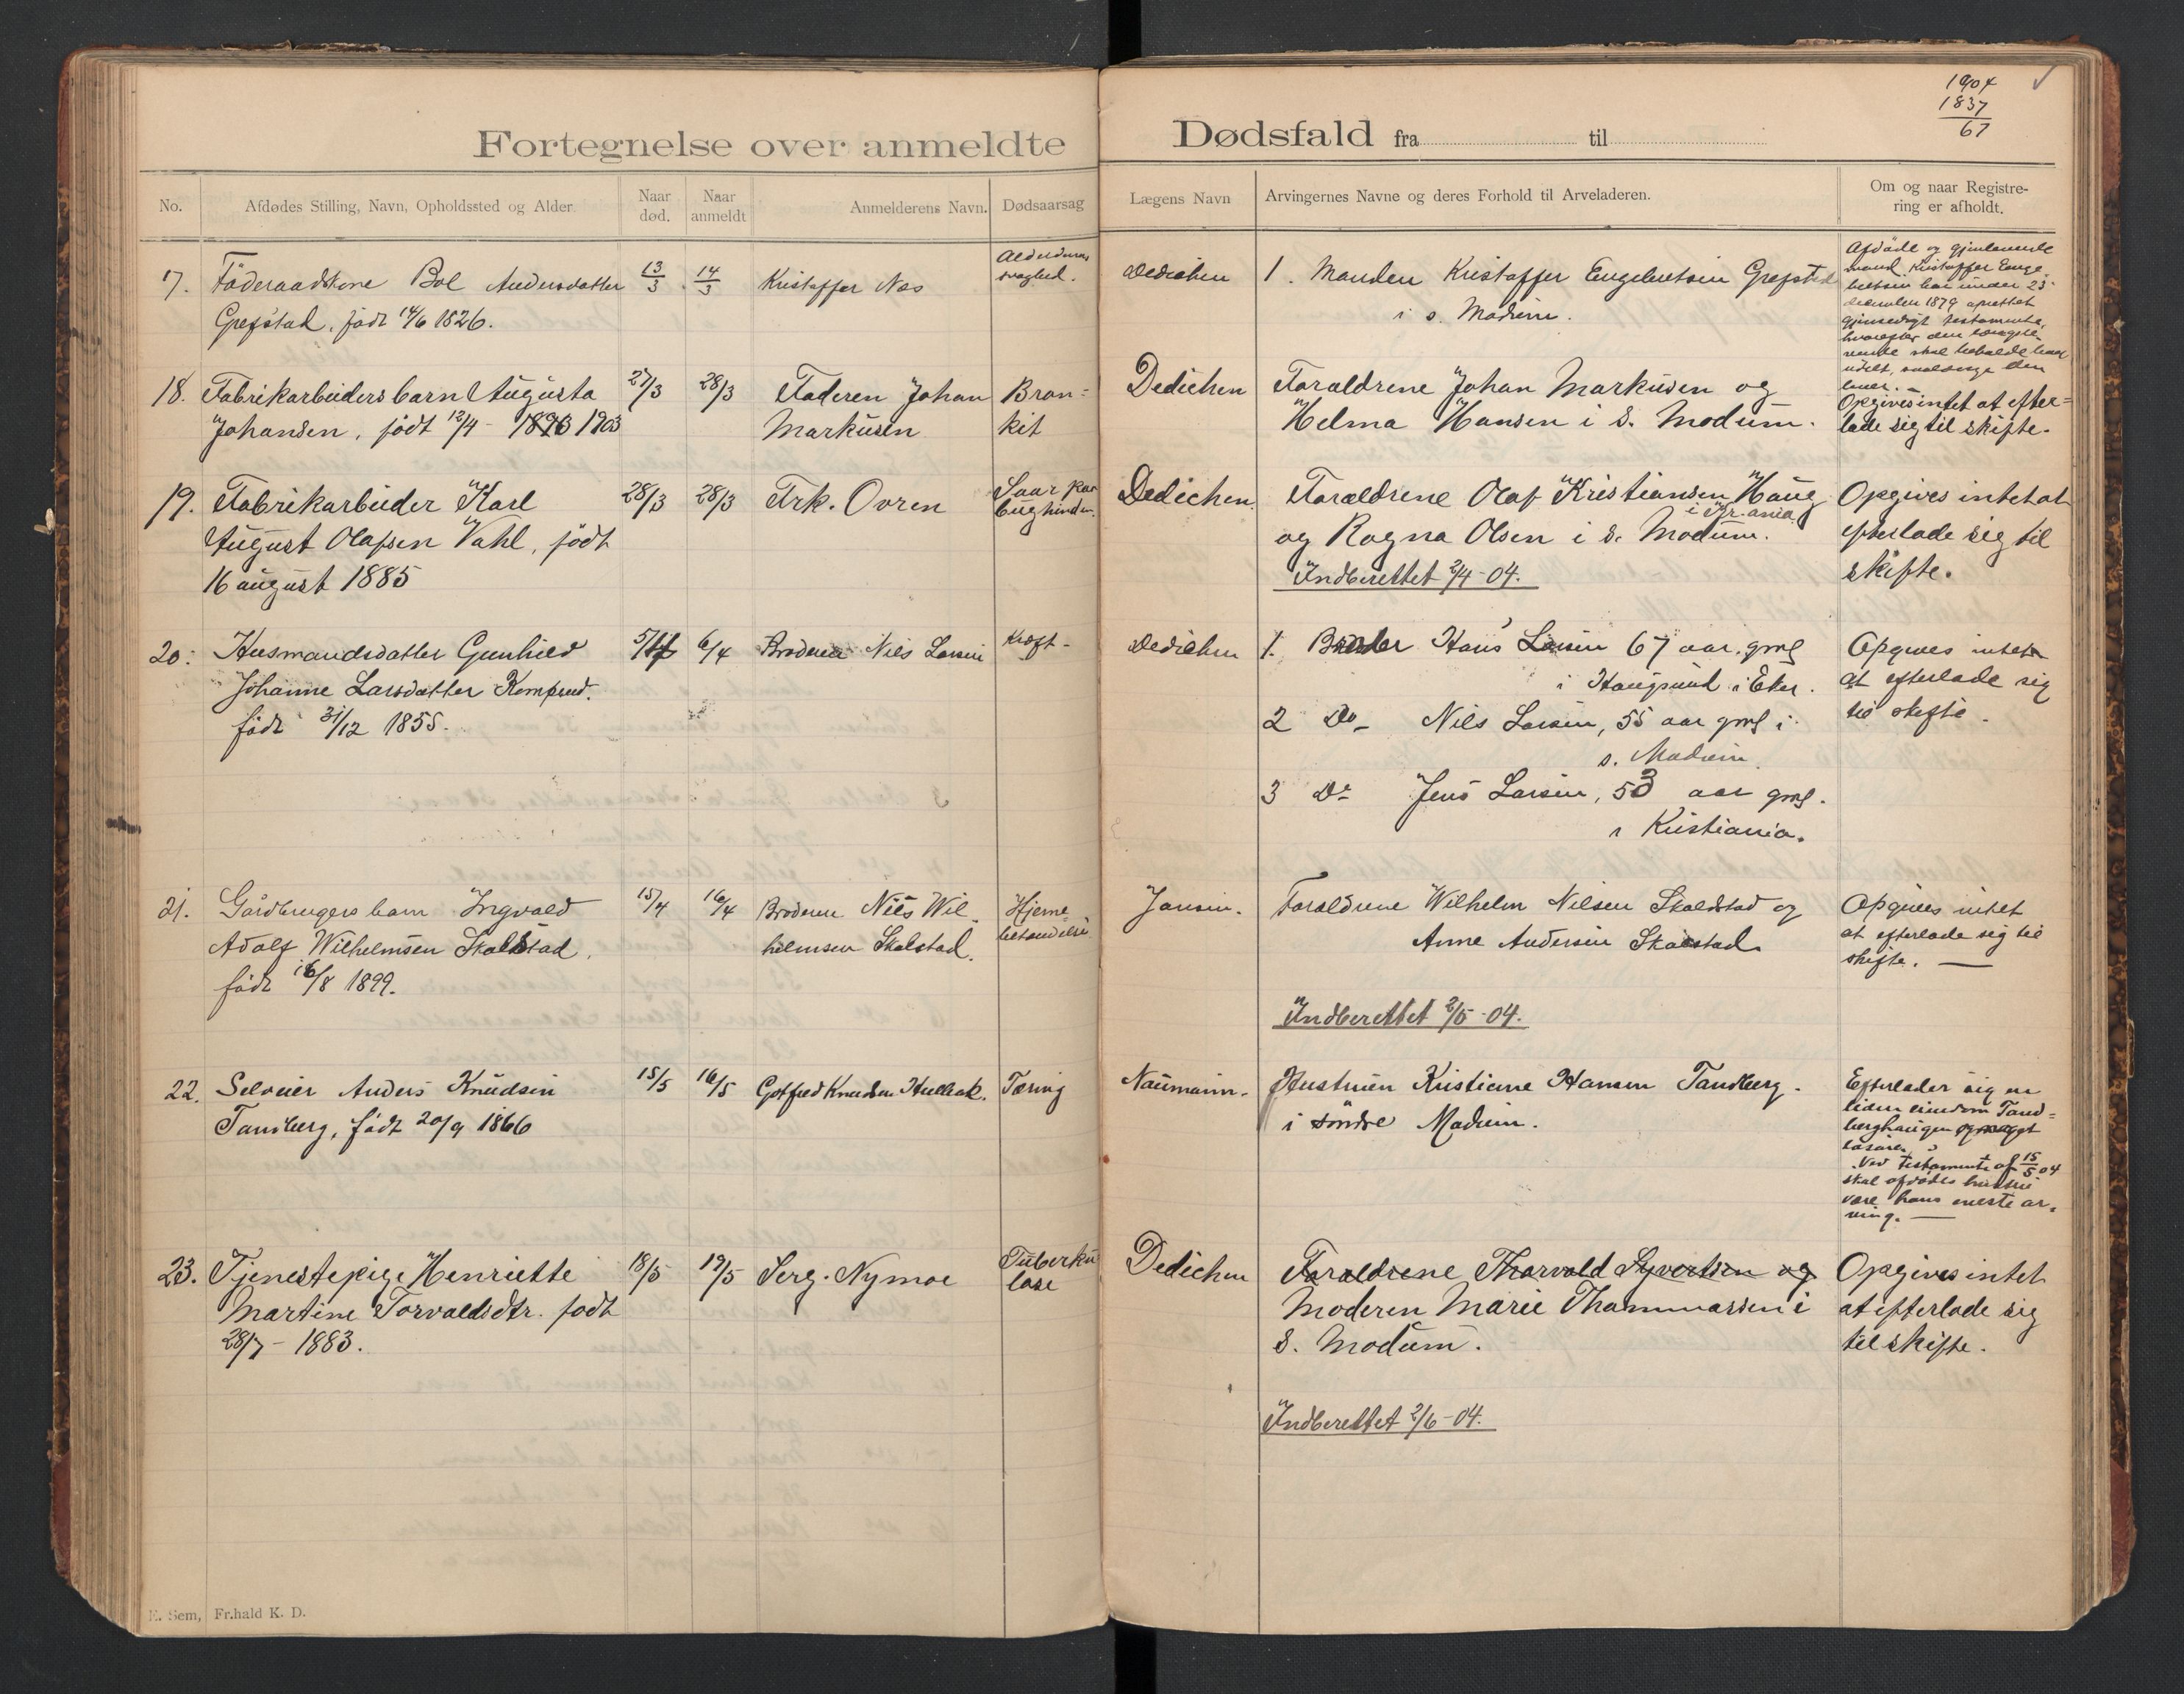 1904
1837
67
Fortegnelse over anmeldte Dødsfald fra til
No.
Afdødes Stilling, Navn, Opholdssted og Alder
Naar død.
Naar anmeldt
Anmelderens Navn.
Dødsaarsag
Lægens Navn
Arvingernes Navne og deres Forhold til Arveladeren.
Om og naar Registre-
ring er afholdt.
17. Föderaadskone Bol Andersdatter 13/3 14/3 Kristoffer Næs Alderdoms
svaghed. Dedichen 1. Manden Kristoffer Engebretsen Grefsted
Grefstad, født 14/6 1826.
i s. Modum.
Afdøde og gjenlevende
mand Kristoffer Enge-
bretsen har under 23
december 1879 oprettet
gjensidigt testamente,
hvorefter den længstle-
vende skal beholde boet
udelt, saalænge den
lever. —
18. Fabrikarbeidersbarn Augusta 27/3 28/3 Faderen Johan Bron= Dedichen Forældrene Johan Markusen og Opgives intet at efter=
Johansen, født 12/4 - 1903 Markusen kit Helma Hansen i s. Modum. lade sig til skifte.
19. Fabrikarbeider Karl 28/3 28/3 Frk. Ovren Dedichen. Forældrene Olaf Kristiansen Haug Opgives intet at
i Kr.ania
August Olafsen Vahl, født og Ragna Olsen i s. Modum. efterlade sig til
16 august 1885 Indberettet 2/4-04. skifte.
20. Husmandsdatter Gunhild 5/4 6/4 Broderen Nils Larsen Kræft - Dedichen 1. Broder Hans Larsen 67 aar, gml Opgives intet
Johanne Larsdatter Komprud. i Haugsund i Eker. at efterlade sig
født 31/12 1855. 2 Do- Nils Larsen, 55 aar gml i til skifte.
s. Modum.
3 Do- Jens Larsen, 53 aar gml.
i Kristiania.
21. Gårdbrugers barn Ingvald 15/4 16/4 Broderen Nils Wil- Hjerne- Jansen. Forældrene Wilhelm Nilsen Skalstad og Opgives intet
Adolf Wilhelmsen Skalstad, helmsen Skalstad. betændelse Anne Andersen Skalstad at efterlade sig til
født 16/8 1899. skifte. —
Indberettet 2/5-04.
22. Selveier Anders Knudsen 15/5 16/5 Gotfred Knudsen Hulbak. Tæring Naumann. Hustruen Kristiane Hansen Tandberg. Efterlader sig en
Tandberg, født 20/9 1866 i søndre Modum. liden eiendom Tand=
berghaugen og noget
løsøre.
Ved testamente af 15/5 04
skal afdødes hustru
være hans eneste ar-
ving. —
23. Tjenestepige Henriette 18/5 19/5 Serg. Nymoe Tuberku Dedichen Forældrene Thorvald Syvertsen og Opgives intet
Martine Torvaldsdtr. født lose Moderen Marie Thommassen i at efterlade sig
28/7 - 1883. s. Modum. til skifte.
Indberettet 2/6-04.
E. Sem, Fr.hald K. D.